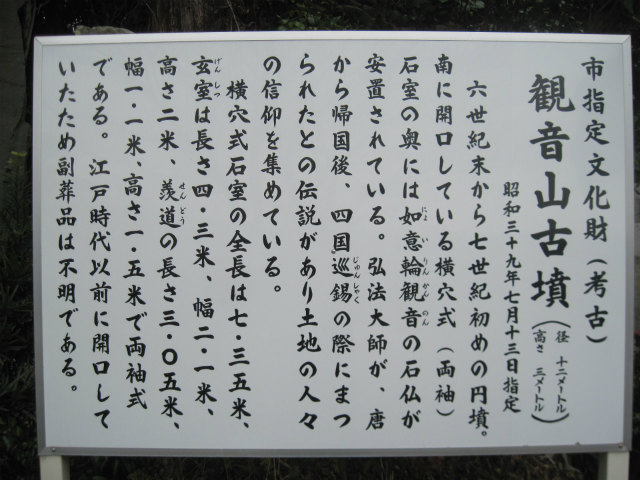 市指定文化財（考古）
観音山古墳（径　十二メートル
高さ　三メートル）
昭和三十九年七月十三日指定
六世紀末から七世紀初めの円墳。
南に開口している横穴式（両袖）
石室の奥には如意輪観音の石仏が
にょいりんかんのん
安置されている。弘法大師が、唐
から帰国後、四国巡錫の際にまつ
じゅんしゃく
られたとの伝説があり土地の人々
の信仰を集めている。
横穴式石室の全長は七・三五米、
玄室は長さ四・三米、幅二・一米、
げんしつ
高さ二米、羨道の長さ三・〇五米、
せんどう
幅一・一米、高さ一・五米で両袖式
である。江戸時代以前に開口して
いたため副葬品は不明である。